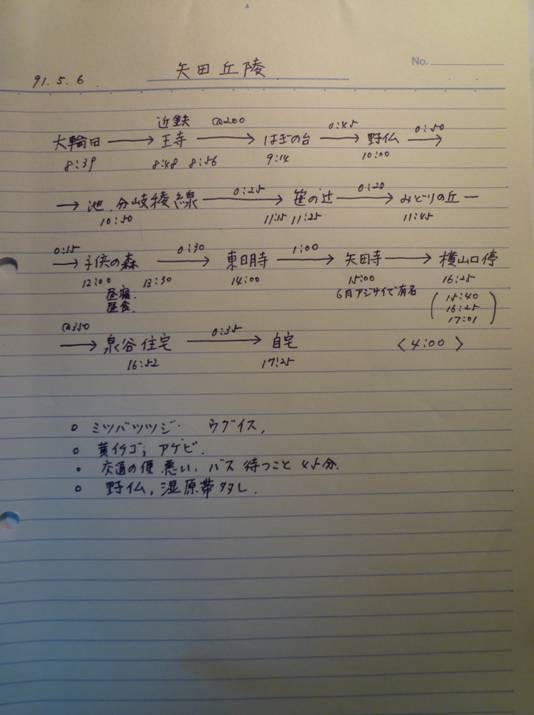 矢田丘陵
No.
91.5.6
近鉄 @200 0:45 0:50
大輪田 → 王寺 → はぎの台 → 野仏 →
8:39 8:48 8:56 9:14 10:00
0:25 0:20
→ 池、分岐稜線 → 笹の辻 → みどりの丘 —
10:50 11:15 11:25 11:45
0:15 0:30 1:00
→ 子供の森 → 東明寺 → 矢田寺 → 横山口停
12:00 13:30 14:00 15:00 16:25
昼寝 6月アジサイで有名 (15:40
昼食 16:25
17:01)
@350 0:35
→ 泉谷住宅 → 自宅 〈4:00〉
16:52 17:25
○ ミツバツツジ・ ウグイス,
○ 黄イチゴ; アケビ.
○ 交通の便 悪い, バス待つこと 45分.
○ 野仏, 湿原帯タタシ.